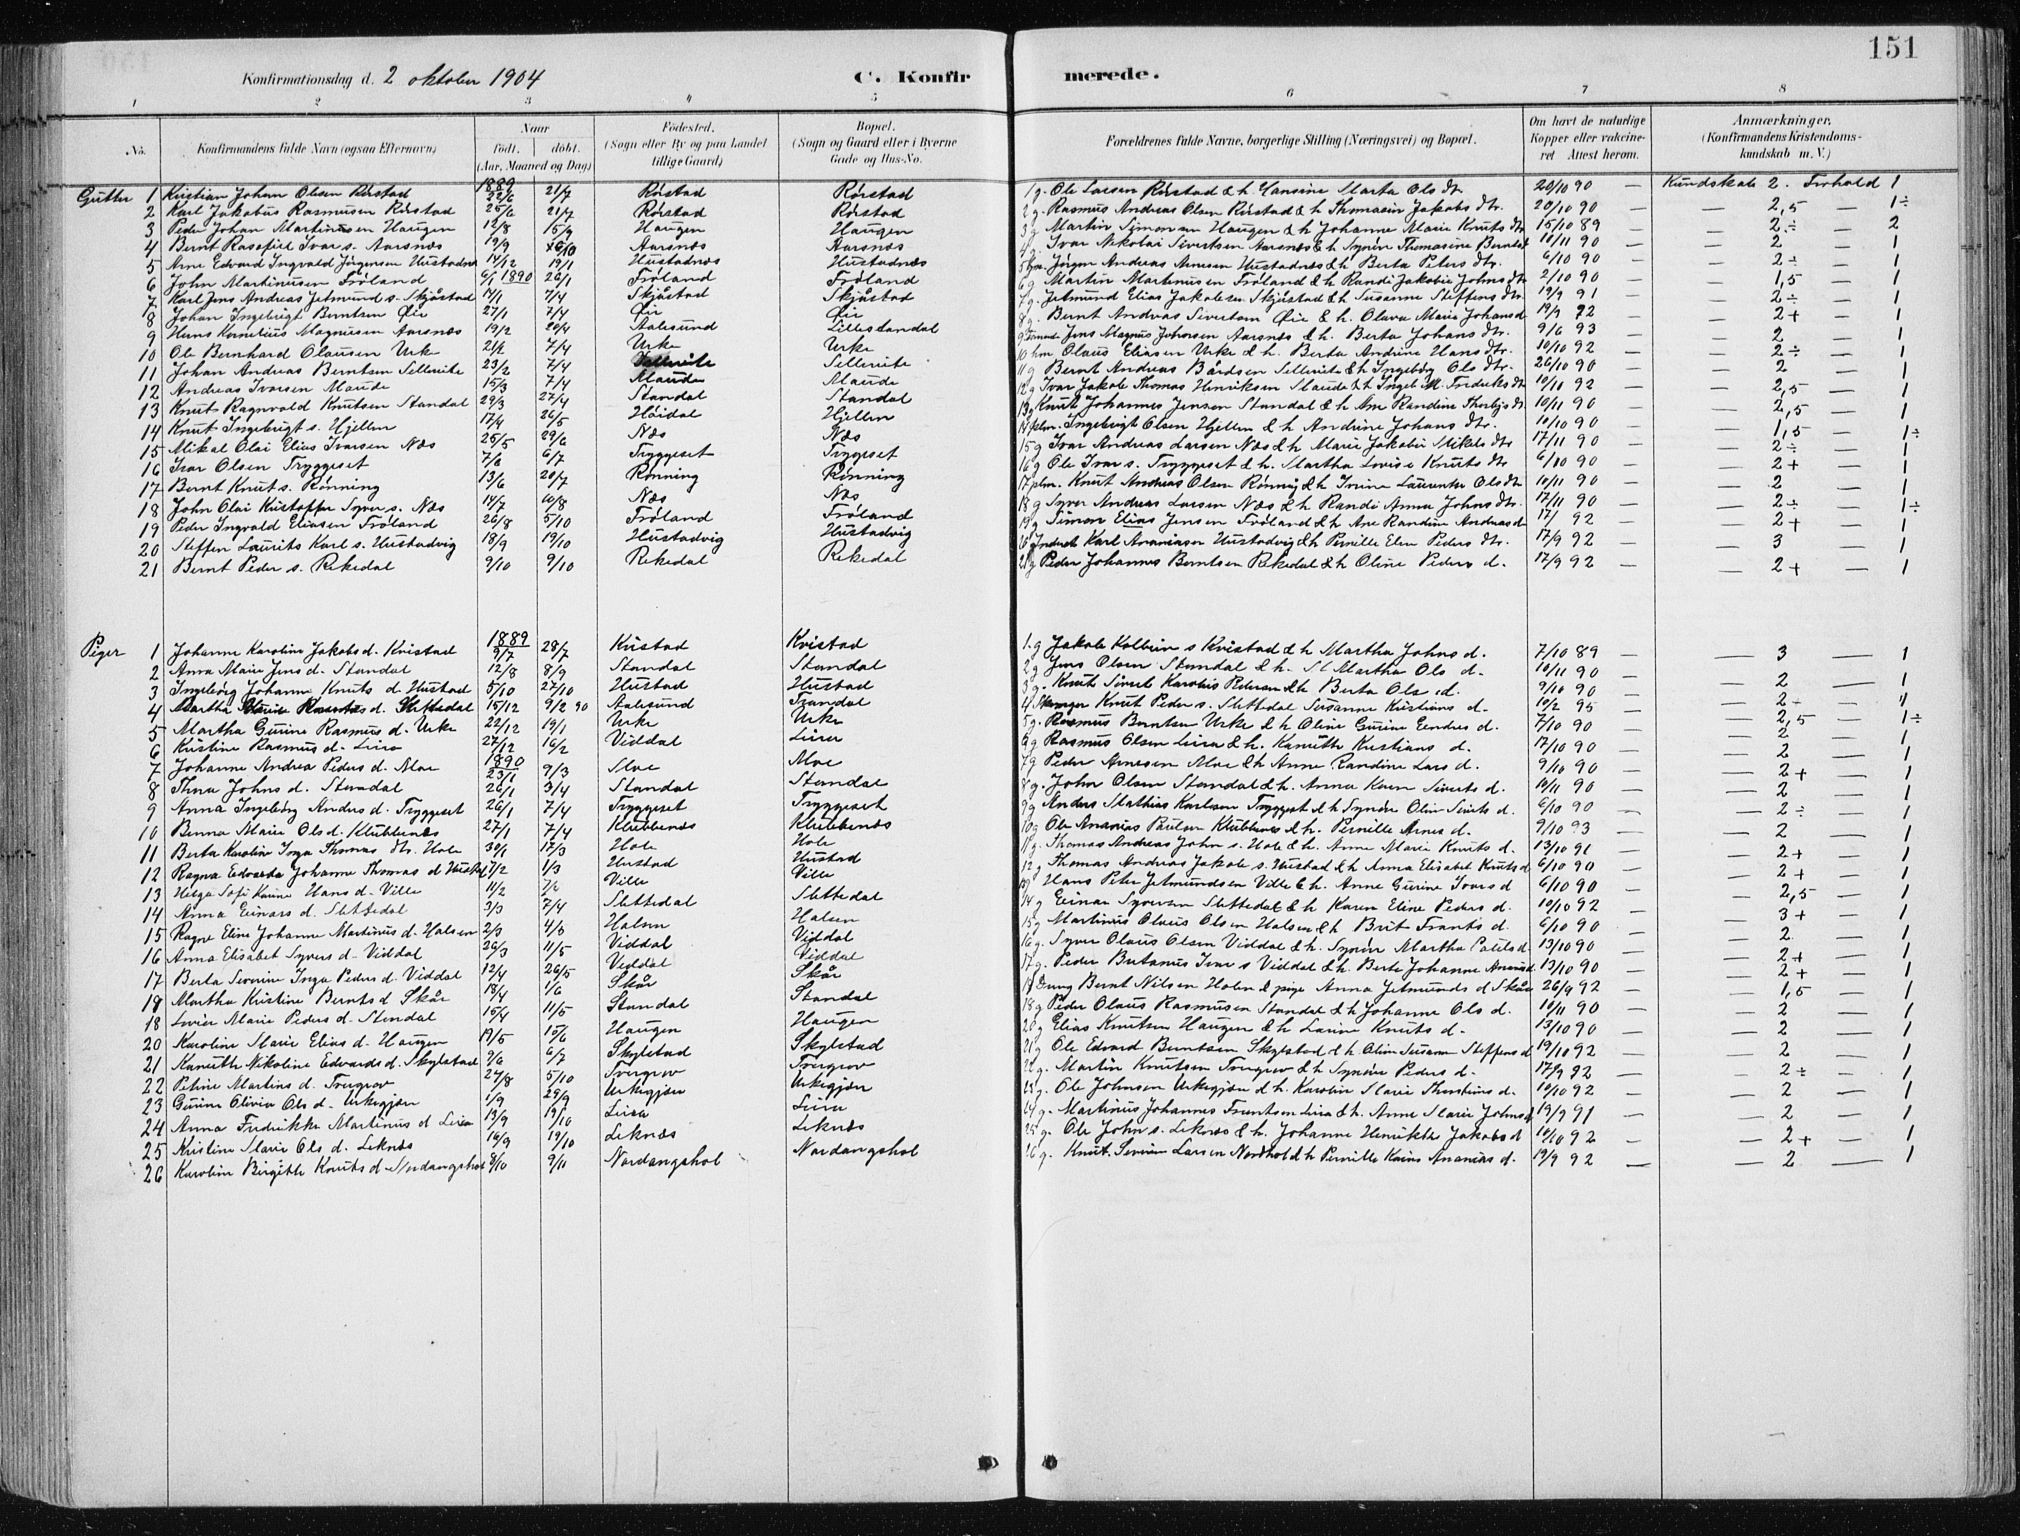 151
Konfirmationsdag d. 2 oktober 1904 C. Konfirmerede.
1 2 3 4 5 6 7 8
No. Konfirmandens fulde Navn (ogsaa Efternavn) Naar födt. döbt. (Aar, Maaned og Dag) Födested. (Sogn eller By og paa Landet tillige Gaard) Bopæl. (Sogn og Gaard eller i Byerne Gade og Hus-No. Forældrenes fulde Navne, borgerlige Stilling (Næringsvei) og Bopæl. Om havt de naturlige Kopper eller vakcineret Attest herom. Anmærkninger, (Konfirmandens Kristendomskundskab m. V.)
Gutter 1 Kristian Johan Olsen Rörstad 1889 22/6 21/7 Rörstad Rörstad 1 g. Ole Larsen Rörstad & h. Hansine Marta Ols dtr 20/10 90 — Kundskab 2. Forhold 1
2 Karl Jakobus Rasmusen Rörstad 25/6 21/7 Rörstad Rörstad 2 g. Rasmus Andreas Olsen Rörstad & h Thomasin Jakobs dtr. 20/10 90 — — 2,5 — 1÷
3 Peder Johan Martinusen Haugen 12/8 15/9 Haugen Haugen 3 g Martin Simonsen Haugen & h Johanne Marie Knuts dtr 15/10 89 — — 2÷ — 2
4 Bernt Ivar s. Aarsnæs 19/9 Aarsnæs Aarsnæs 4 g. Ivar Nikolai Sivertsen Aarsnæs & h Synöv Thomasine 10/11 90 — — 2 — 1
5 Arne Edvard Ingvald Jörgensen Hustadnæs 14/12 19/1 Hustadnæs Hustadnæs 5 Jörgen Andreas Arnesen Hustadnæs & h Berta Peters dtr. 6/10 90 — — 2÷ — 1
6 John Martinusen Tröland 6/1 1890 26/1 Tröland Tröland 6 g Martin Martinusen Tröland & h Randi Jakobie Johns dtr 2/10 90 — — 1,5 — 1
7 Karl Jens Andreas Jetmund s. Skjåstad 14/1 7/4 Skjåstad Skjåstad 7 g. Jetmund Elias Jakobsen Skjåstad & h Susanne Steffens dtr 19/9 91 — — 2÷ — 1
8 Johan Ingebrigt Berntsen Öie 27/1 7/4 Öie Öie 8 g. Bernt Andreas Sivertsen Öie & h Olava Marie Johans d 19/9 92 — — 2+ — 1
9 Hans Kornelius Magnusen Aarsnæs 19/2 20/4 Aalesund Lillestandal 9 Jens Magnus Johansen Aarsnæs & h. Berta Johans dtr. 9/6 93 — — 2 — 1
10 Ole Bernhard Olausen Urke 21/2 7/4 Urke Urke 10 hm Olaus Eliasen Urke & h. Berta Andrine Hans dtr. 10/10 92 — — 2÷ — 1
11 Johan Andreas Berntsen Sellereite 23/2 7/4 Sellereite Sellereite 11 g Bernt Andreas Bårdsen Sellereite & h Ingeborg Ols dtr. 26/10 90 — — 2 — 1
12 Andreas Ivarsen Maude 15/3 7/4 Maude Maude 12 g Ivar Jakob Thomas Henriksen Maude & h Ingeb. M. Fredriks dtr 10/11 92 — — 2,5 — 1
13 Knut Ragnvald Knutsen Standal 29/3 27/4 Standal Standal 13 g Knut Johannes Jensen Standal & h Ane Randine 10/11 90 — — 2,5 — 1
14 Knut Ingebrigt s. Hjellen 17/4 26/5 Höidal Hjellen 14 plm. Ingebrigt Olsen Hjellen & h Andrine Johans dtr. 10/10 90 — — 1,5 — 1÷
15 Mikal Olai Elius Ivarsen Næs 25/5 29/6 Næs Næs 15 g Ivar Andreas Larsen Næs & h Marie Jakobie Mikals dtr 17/11 90 — — 2÷ — 1
16 Ivar Olsen Tryggeset 7/6 6/7 Tryggeset Tryggeset 16 g Ole Ivar s. Tryggeset & h. Martha Lovise Knuts dtr 6/10 90 — — 2+ — 1
17 Bernt Knut s. Rönning 13/6 20/7 Rönning Rönning 17 plm. Knut Andreas Olsen Rönning & h Ols dtr 10/11 90 — — 2 — 1
18 John Olai Kristoffer Syver s. Næs 14/7 10/8 Næs Næs 18 g Syver Andreas Larsen Næs & h Randi Anna Johns dtr. 17/11 90 — — 2÷ — 1÷
19 Peder Ingvald Eliasen Tröland 26/8 5/10 Tröland Tröland 19 g Simon Elias Jensen Tröland & h Ane Randine Andreas d 17/1 92 — — 2+ — 1
20 Steffen Laurits Karl s. Hustadvig 18/9 19/10 Hustadvig Hustadvig Karl Ananiasen Hustadvig & h Pernille Elen Peders dtr. 17/9 92 — — 3 — 1
21 Bernt Peder s. Rekedal 9/10 9/10 Rekedal Rekedal 21 g Peder Johannes Berntsen Rekedal & h Oline Peders d. 17/9 92 — — 2+ — 1
Piger 1 Johanne Karoline Jakobs d. Kvistad 1889 9/7 28/7 Kvistad Kvistad 1. g Jakob Kolbein s Kvistad & h Martha Johns d. 7/10 89 — — 3 — 1
2 Anna Marie Jens d. Standal 12/8 8/9 Standal Standal 2 g Jens Olsen Standal & h. Martha Ols d. 10/11 90 — — 2 — 1
3 Ingeborg Johanne Knuts d. Hustad 5/10 27/10 Hustad Hustad 3 g. Knut Sivert Karolus Petersen & h Berta Ols d. 9/10 90 — — 2 — 1
4 Martha d. Slettedal 15/12 9/2 90 Aalesund Trandal 4 Knut Peder s. Slettedal Susanne Kristians d. 10/2 95 — — 2÷ — 1
5 Martha Gurine Rasmus d. Urke 22/12 19/1 Urke Urke 5 g. Rasmus Berntsen Urke & h Oline Gurine Eendres d. 7/10 90 — — 2,5 — 1÷
6 Kristine Rasmus d. Lira 27/12 16/2 Viddal Lira 6 g Rasmus Olsen Lira & h. Kanutte Kristians d. 17/10 90 — — 2 — 1
7 Johanne Andrea Peders d. Moe 1890 23/1 9/3 Moe Moe 7 g Peder Arnesen Moe & h Anne Randine Lars d. 9/10 90 — — 2 — 1
8 Thea Johns d. Standal 26/1 3/4 Standal Standal 8 g. John Olsen Standal & h. Anna Karen Siverts d. 10/11 90 — — 2+ — 1
9 Anna Ingeborg Anders d. Tryggeset 26/1 7/4 Tryggeset Tryggeset 9 g Anders Mathias Karlsen Tryggeset & h Synöve Olin Siverts d. 6/10 90 — — 2 — 1
10 Benna Marie Ols d. Klubbenæs 27/1 7/4 Klubbenæs Klubbenæs 10 g Ole Ananias Paulsen Klubbenes & h. Pernille Arnes d. 9/10 93 — — 2÷ — 1
11 Berta Karoline Inga Thomas dtr. Hole 30/1 17/3 Hole Hole 11 g. Thomas Andreas John s. Hole & h. Anne Marie Knuts d. 13/10 91 — — 2 — 1
12 Ragna Edvarda Johanne Thomas d Hustad 7/2 1/3 Hustad Hustad 12 g Thomas Andreas Jakob s. Hustad & h Anna Elisabet Knuts d 6/10 90 — — 2+ — 1
13 Helga Sofi Karine Hans d. Ville 11/2 Ville Ville 13 g Hans Peter Jetmundsen Ville & h. Anne Gurine Ivars d 6/10 90 — — 2+ — 1
14 Anna Einars d. Slettedal 3/3 7/4 Slettedal Slettedal 14 g Einar Syversen Slettedal & h Karen Eline Peders d. 10/10 92 — — 2,5 — 1
15 Ragne Eline Johanne Martinus d. Halsen 2/3 4/6 Halsen Halsen 15 g Martinus Olaus Olsen Halsen & h Brit Frants d. 6/10 90 — — 3+ — 1
16 Anna Elisabet Syvers d. Viddal 26/3 11/5 Viddal Viddal 16 g. Syver Olaus Olsen Viddal & h. Synöv Martha d. 13/10 90 — — 2 — 1
17 Berta Severine Inga Peders d. Viddal 12/4 26/5 Viddal Viddal 17 g. Peder Ivar s Viddal & h. Berte Johanne d. 13/10 90 — — 2+ — 1
18 Martha Kristine Bernts d Skår 18/4 1/6 Skår Skår Bernt Nilsen Holen & pige Anna Jetmunds d Skår 26/9 92 — — 2+ — 1
18 Lovise Marie Peders d. Standal 15/4 11/5 Standal Standal 18 g Peder Olaus Rasmusen Standal & h Johanne Ols d. 10/11 90 — — 1,5 — 1
20 Karoline Marie Elias d. Haugen 19/5 15/6 Haugen Haugen 20 g Elias Knutsen Haugen & h Lovise Knuts d. 13/10 90 — — 2 — 1
21 Kanutte Nikoline Edvards d. Skylstad 9/6 6/7 Skylstad Skylstad 21 g Ole Edvard Berntsen Skylstad & h Olin Susanne Steffens d 19/10 92 — — 2 — 1
22 Petrine Martins d. Trugrov 27/8 5/10 Trugrov Trugrov 22 g. Martin Knutsen Trugrov & h Synöve Peders d. 17/9 92 — — 2 — 1
23 Gurine Olivia Ols d. Urkegjön 1/9 29/9 Urkegjön Urkegjön 23 g. Ole Johnsen Urkegjön & h. Karolin Marie d. 10/10 92 — — 2÷ — 1
24 Anna Fredrikke Martinus d Lira 13/9 19/10 Lira Lira 24 g. Martinus Johannes Frantsen Lira & h. Anne Marie Johns d 19/9 91 — — 2 — 1
25 Kristine Marie Ols d. Leknæs 16/9 19/10 Leknæs Leknæs 25 g. Ole John s. Leknæs & h. Johanne Henrikke Jakobs d 10/10 92 — — 2+ — 1
26 Karoline Birgitte Knuts d Nordangshol 8/10 9/11 Nordangshol Nordangshol 26 g. Knut Severin Larsen Nordhol & h Pernille Karine Ananias d. 19/9 92 — — 2 — 1